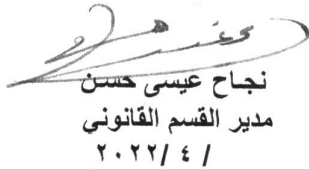 نجاح عيسى حسن
مدير القسم القانوني
/ ٤ /٢٠٢٢